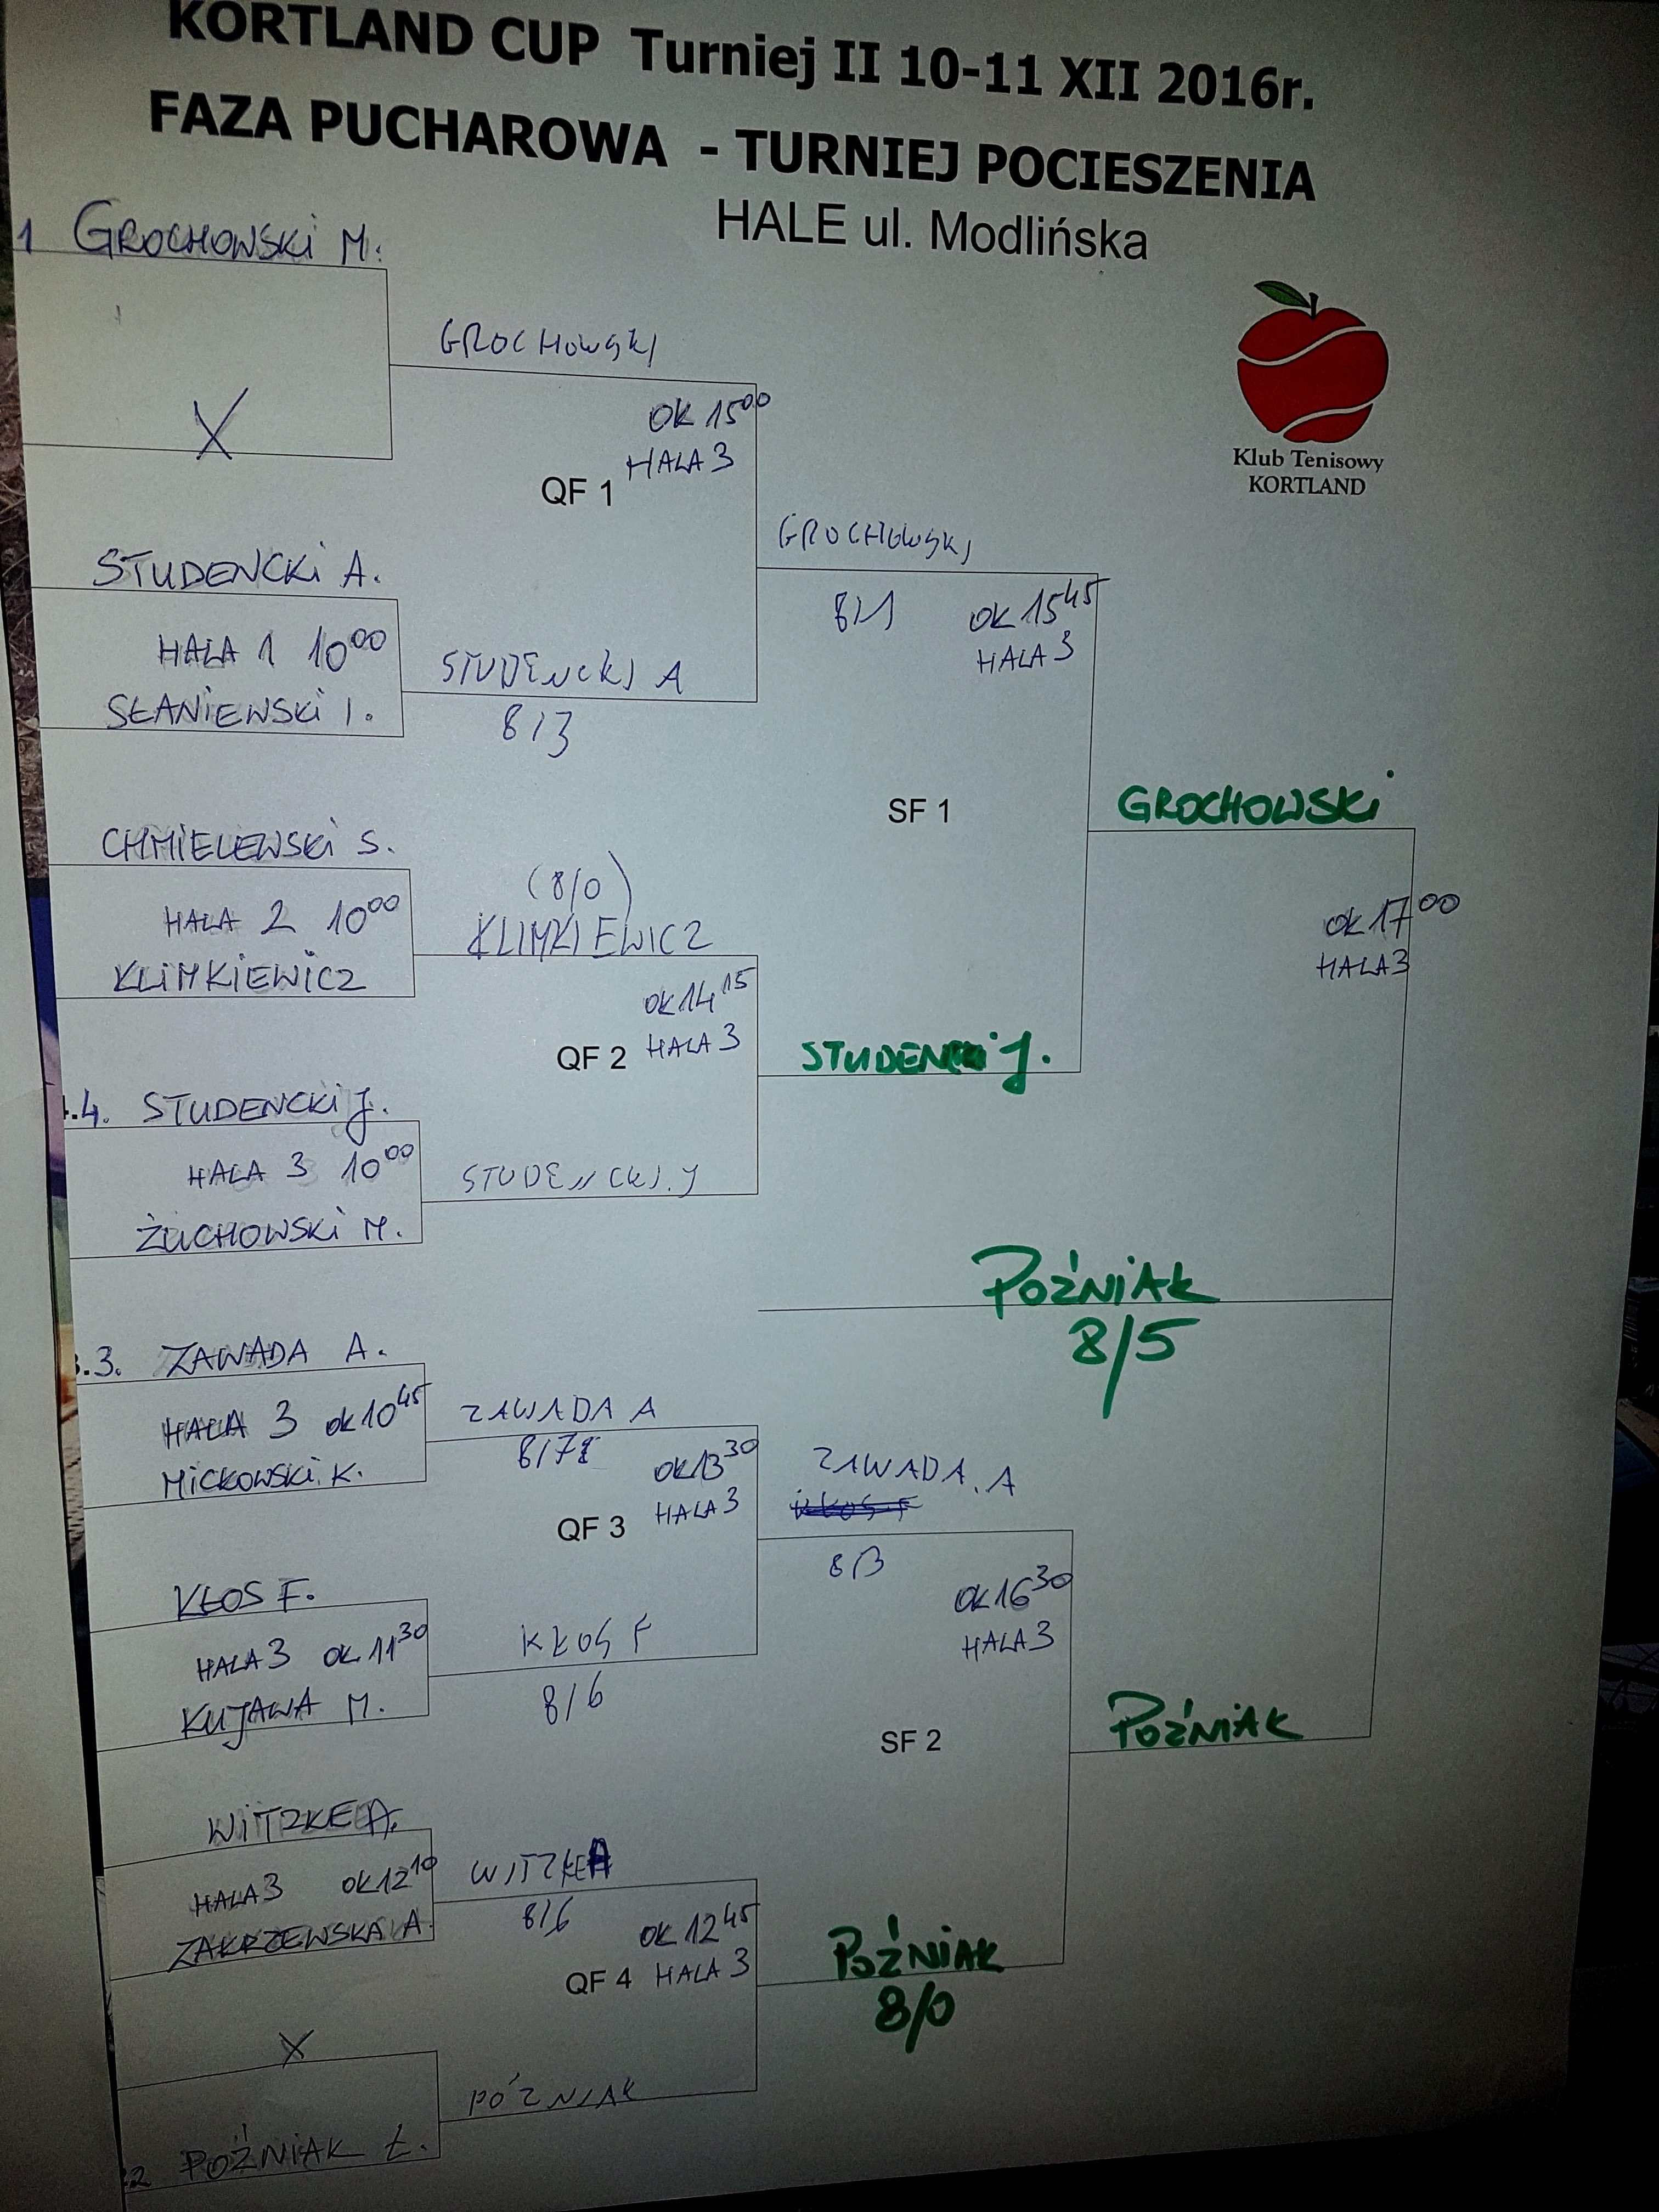 KORTLAND CUP Turniej II 10-11 XII 2016r.
FAZA PUCHAROWA - TURNIEJ POCIESZENIA
HALE ul. Modlińska
Klub Tenisowy
KORTLAND
1 GROCHOWSKI M.
X
GROCHOWSKI
OK 15 00
HALA 3
QF 1
STUDENCKI A.
HALA 1 10 00
SŁANIEWSKI I.
STUDENCKI A
8/3
GROCHOWSKI
8/1
OK 15 45
HALA 3
CHMIELEWSKI S.
HALA 2 10 00
KLIMKIEWICZ
(8/0)
KLIMKIEWICZ
OK 14 15
HALA 3
QF 2
.4. STUDENCKI J.
HALA 3 10 00
ŻUCHOWSKI M.
STUDENCKI.J
STUDENCKI J.
SF 1
GROCHOWSKI
OK 17 00
HALA 3
POŹNIAK
8/5
.3. ZAWADA A.
HALA 3 OK 10 45
MICKOWSKI.K.
ZAWADA A
OK 13 30
HALA 3
QF 3
KŁOS F.
HALA 3 OK. 11 30
KUJAWA M.
KŁOS F
8/6
ZAWADA.A
8/3
OK 16 30
HALA 3
SF 2
POŹNIAK
WITZKE A.
HALA 3 OK 12 10
ZAKRZEWSKA A.
WITZKE A
8/6
OK 12 45
HALA 3
QF 4
POŹNIAK
8/0
X
2 POŹNIAK Ł.
PÓZNIAK